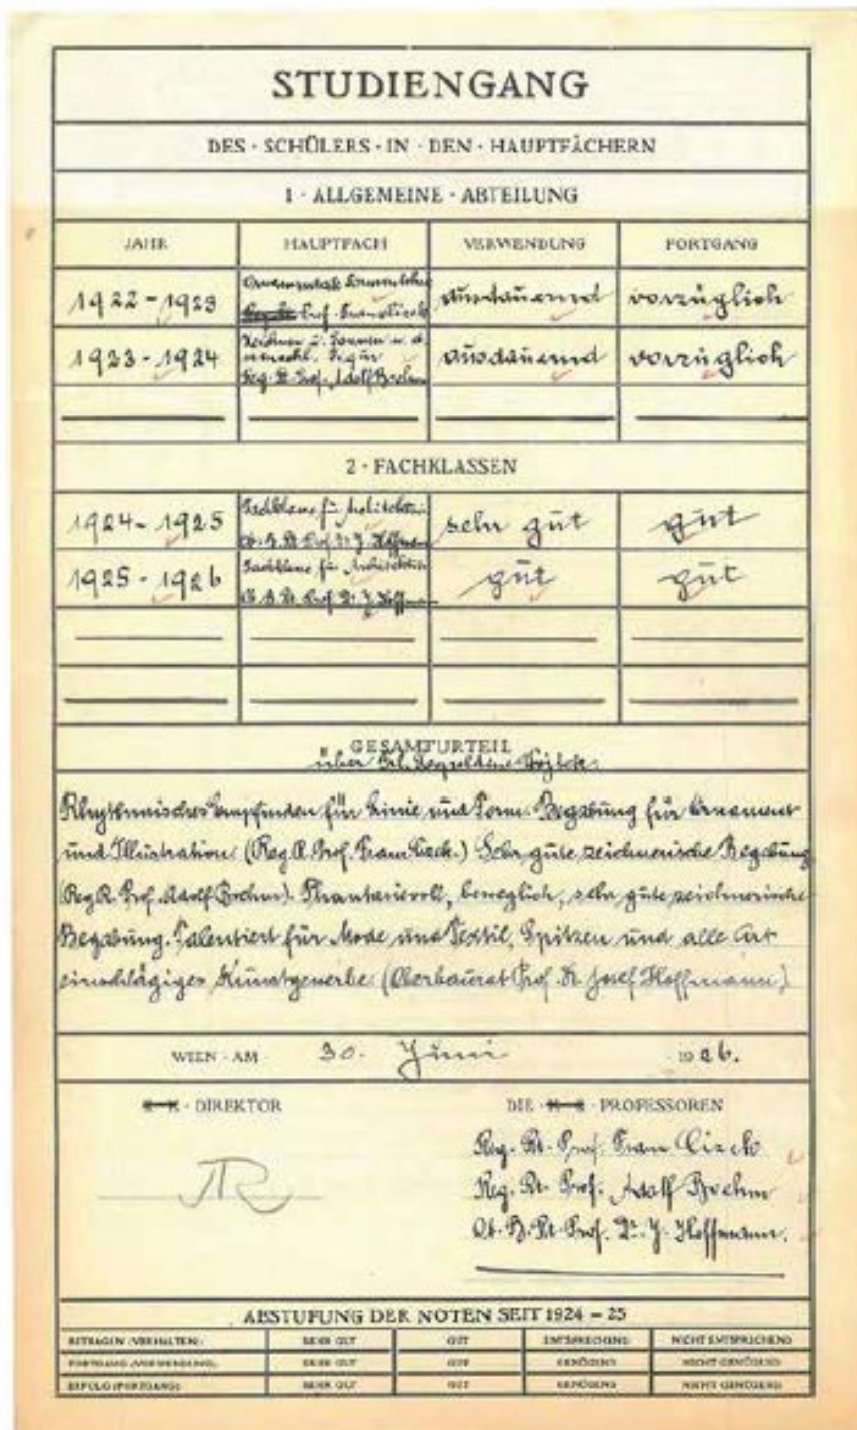 STUDIENGANG
DES · SCHÜLERS · IN · DEN · HAUPTFÄCHERN
1 · ALLGEMEINE · ABTEILUNG
JAHR HAUPTFACH VERWENDUNG FORTGANG
1922-1923 Ornamentale Formenlehre Prof. ausdauernd vorzüglich
1923-1924 Zeichnen u. Formen n. d.
menschl. Figur
Reg. Rt. Prof. Adolf Brehm ausdauernd vorzüglich
2 · FACHKLASSEN
1924-1925 Fachklasse für Architektur
Ob. B. Rt. Prof. Dr. J. Hoffmann sehr gut gut
1925-1926 Fachklasse für Architektur
Ob. B. Rt. Prof. Dr. J. Hoffmann gut gut
GESAMTURTEIL
über Frl.
Rhythmisches Empfinden für Linie und Form. Begabung für Ornament
und Illustration. (Reg. R. Prof. Franz Cizek.) Sehr gute zeichnerische Begabung
(Reg. R. Prof. Adolf Brehm). Phantasievoll, beweglich, sehr gute zeichnerische
Begabung. Talentiert für Mode und Textil, Spitzen und alle Art
einschlägiges Kunstgewerbe. (Oberbaurat Prof. Dr. Josef Hoffmann)
WIEN · AM 30. Juni 1926.
K · K · DIREKTOR DIE · K · K · PROFESSOREN
Reg. Rt. Prof. Franz Cizek
Reg. Rt. Prof. Adolf Brehm
Ob. B. Rt. Prof. Dr. J. Hoffmann.
ABSTUFUNG DER NOTEN SEIT 1924 – 25
BETRAGEN (VERHALTEN): SEHR GUT GUT ENTSPRECHEND NICHT ENTSPRECHEND
FORTGANG (VERWENDUNG): SEHR GUT GUT GENÜGEND NICHT GENÜGEND
ERFOLG (FORTGANG): SEHR GUT GUT GENÜGEND NICHT GENÜGEND